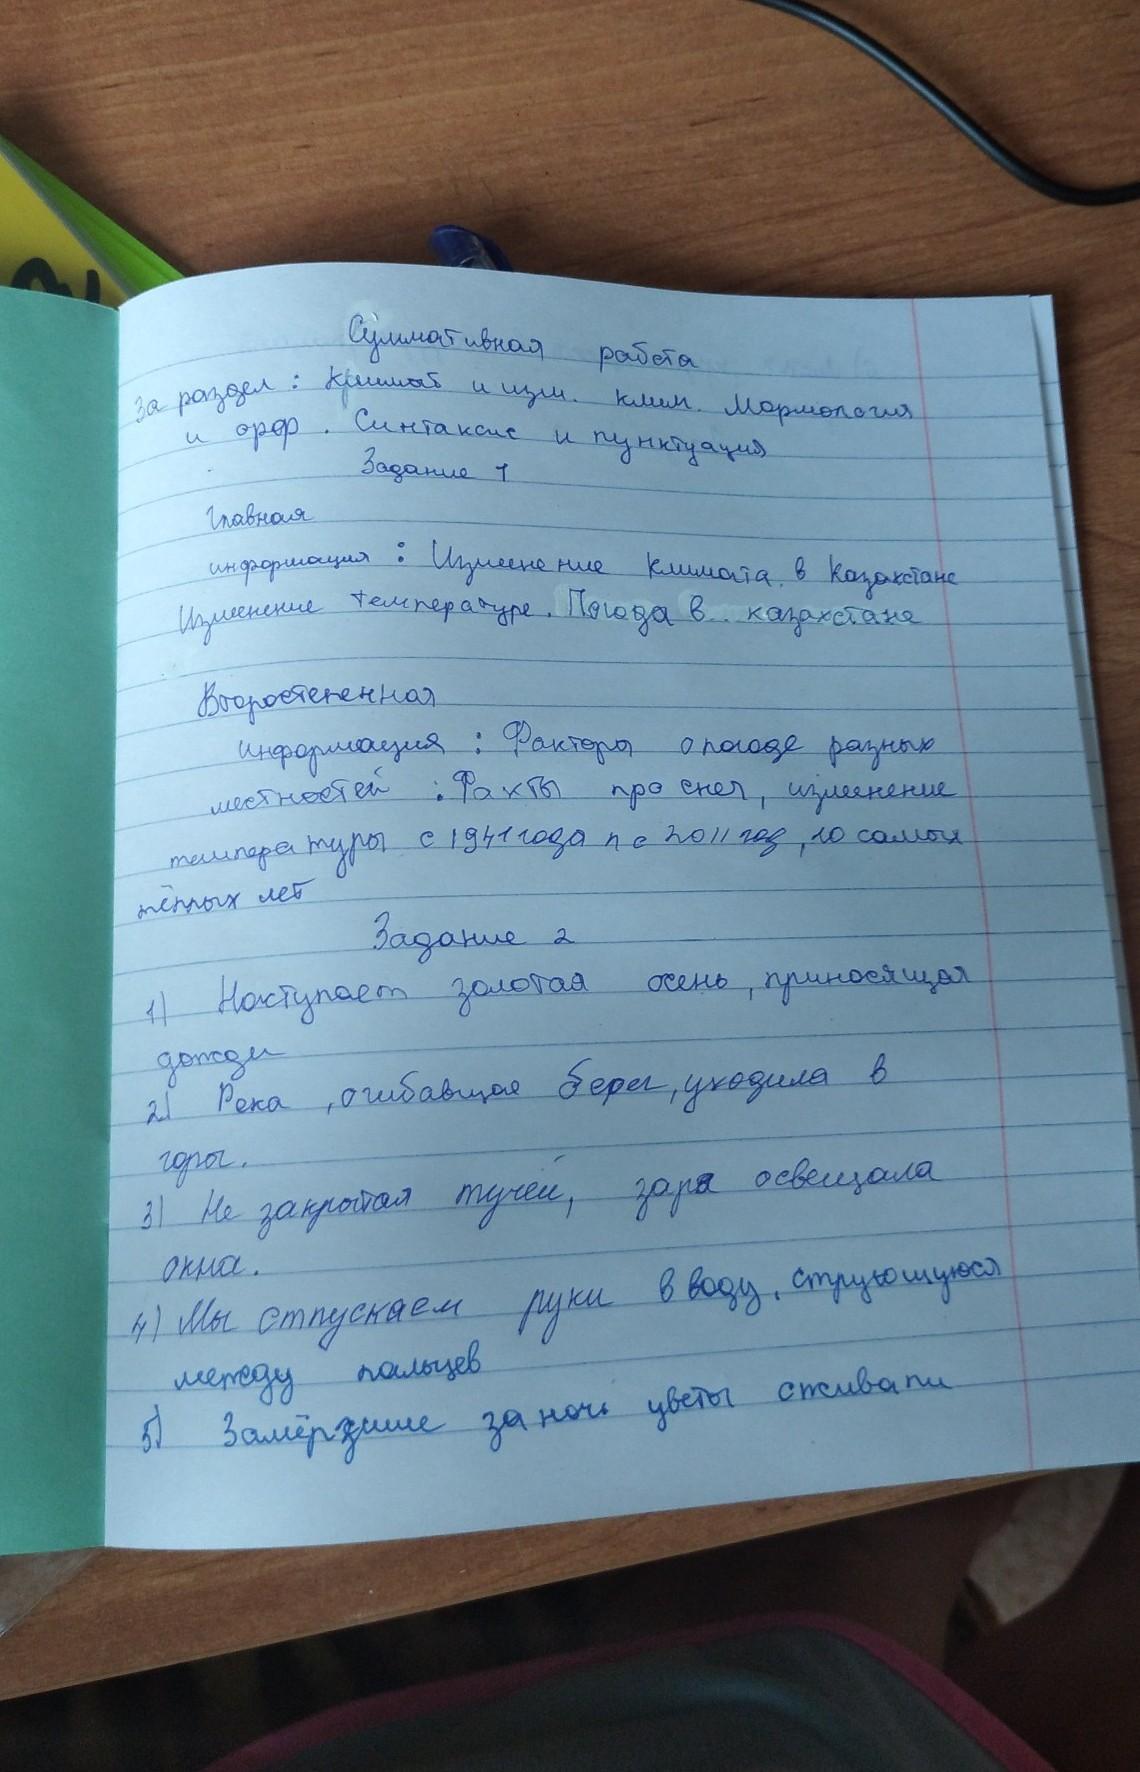 Суммативная работа
За раздел: Климат и изм. клим. Мормология
и орф. Синтаксис и пунктуация
Задание 1
Главная
информация: Изменение климата в Казахстане
Изменение температуре. Погода в казахстане
Второстепенная
информация: Факторы о погоде разных
местностей: Факты про снег, изменение
температуры с 1941 года по 2011 год, 10 самых
тёплых лет
Задание 2
1) Наступает золотая осень, приносящая
дожди
2) Река, огибавщая берег, уходила в
горы.
3) Не закрытая тучей, заря освещала
окна.
4) Мы отпускаем руки в воду, струющуюся
между пальцев
5) Замёрзшие за ночь цветы оживали